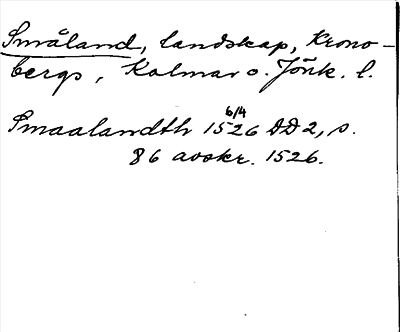 Småland, landskap, Krono-
bergs, Kalmar o. Jönk. l.
6/4
Smaalandth 1526 DD2, s.
86 avskr. 1526.